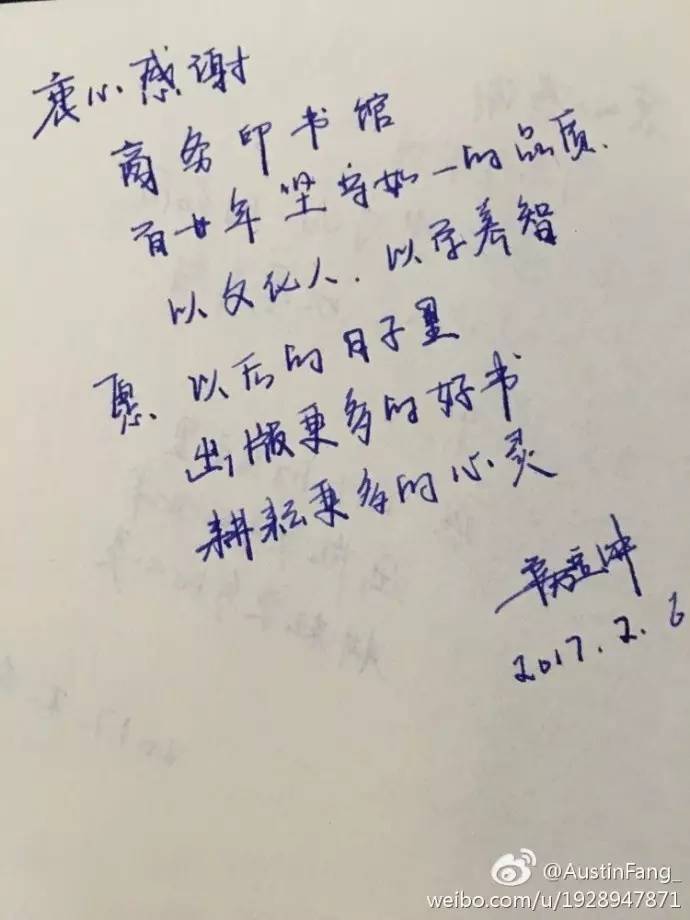 衷心感谢
商务印书馆
百廿年坚守如一的品质.
以文化人.以学养智
愿.以后的日子里
出版更多的好书
耕耘更多的心灵
2017.2.6
@AustinFang_
weibo.com/u/1928947871